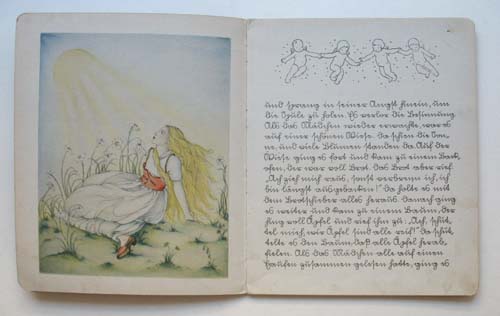 und sprang in seiner Angst hinein, um
die Spule zu holen. Es verlor die Besinnung.
Als das Mädchen wieder erwachte, war es
auf einer schönen Wiese. Da schien die Son-
ne, und viele Blumen standen da. Auf der
Wiese ging es fort und kam zu einem Back-
ofen, der war voll Brot. Das Brot aber rief:
„Ach zieh mich raus, sonst verbrenn ich, ich
bin längst ausgebacken!“ Da holte es mit
dem Brotschieber alles heraus. Danach ging
es weiter und kam zu einem Baum, der
hing voll Äpfel und rief ihm zu: „Ach, schüt-
tel mich, wir Äpfel sind alle reif!“ Da schüt-
telte es den Baum, daß alle Äpfel herab-
fielen. Als das Mädchen alle auf einen
Haufen zusammen gelesen hatte, ging es